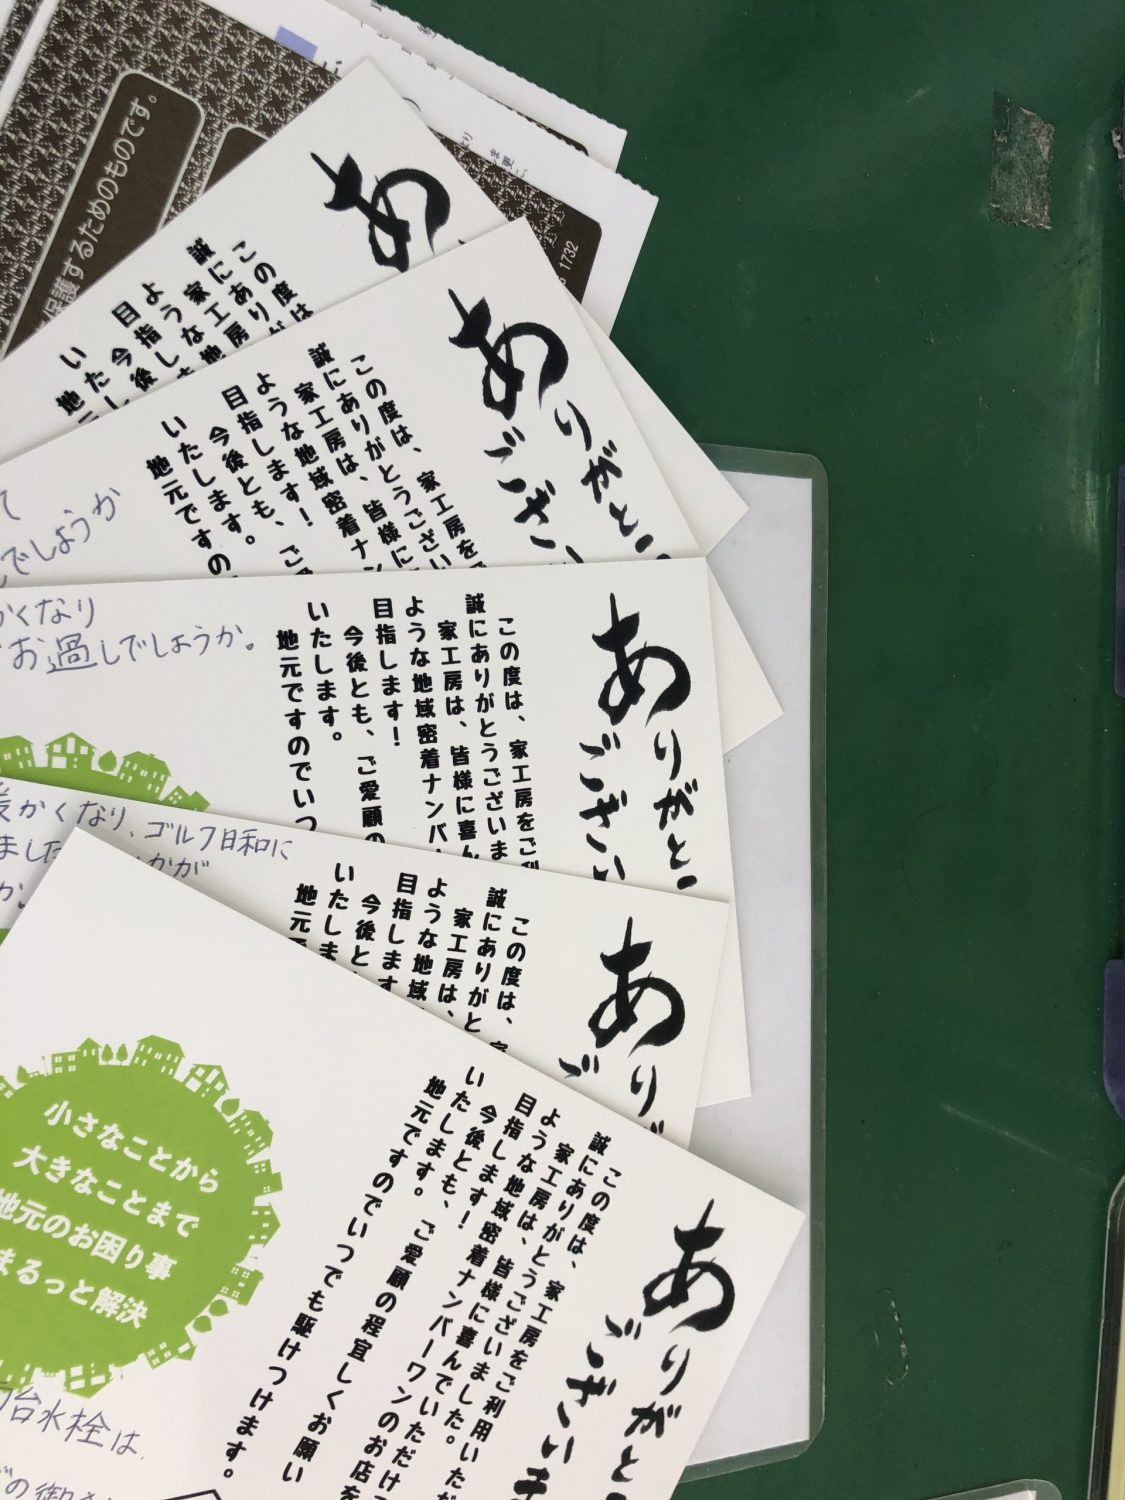 保護するためのものです。
1732
あ
この度は
誠にあり
家工房
ような地
目指し
今後
いた
地元
あありがと
ござい
この度は、家工房を
誠にありがとうござい
家工房は、皆様に
ような地域密着ナン
目指します!
今後とも、ご
いたします。
地元ですの
て
でしょうか
ありがと
ござい
この度は、家工房をご利
誠にありがとうございま
家工房は、皆様に喜ん
ような地域密着ナンバ
目指します!
今後とも、ご愛顧の
いたします。
地元ですのでいつ
かくなり
お過しでしょうか。
ありが
ご
この度は、家
誠にありがと
家工房は、
ような地域
目指します
今後と
いたしま
地元
暖かくなり、ゴルフ日和に
ました
かが
か。
ありがと
ございま
この度は、家工房をご利用いただ
誠にありがとうございました。
家工房は、皆様に喜んでいただけ
ような地域密着ナンバーワンのお店を
目指します!
今後とも、ご愛顧の程宜しくお願い
いたします。
地元ですのでいつでも駆けつけます。
小さなことから
大きなことまで
地元のお困り事
まるっと解決
台水栓は、